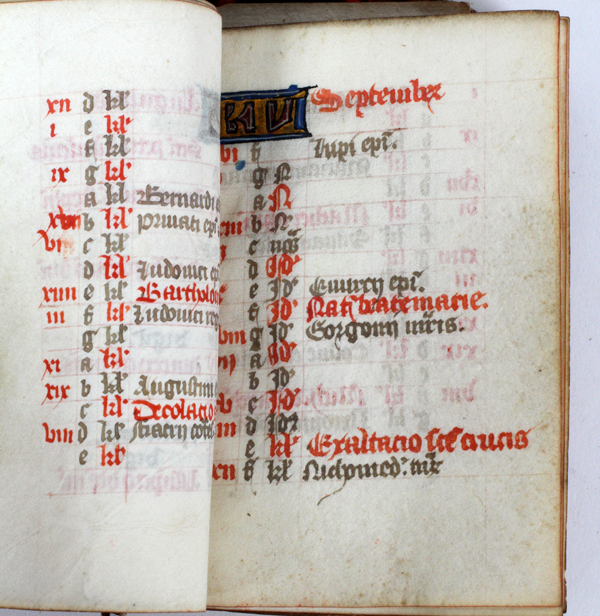 xii d kl
i e kl
f kl
ix g kl
a kl Bernardi
b kl Privati epi
c kl
d kl Ludovici ep
xiiii e kl Bartholo
iii f kl Ludovici re
g kl
xi a kl
xix b kl Augustini
c kl Decolacio
viii d kl
e kl
September
vi f Lupi epi.
g N
a N
b N
c
d Id
e Id Evurcij epi.
f Id Nat beate marie.
g Id Gorgonij mris.
a Id
b Id
c Id
d Id
e kl Exaltacio sce crucis
f kl Nichomed. mr